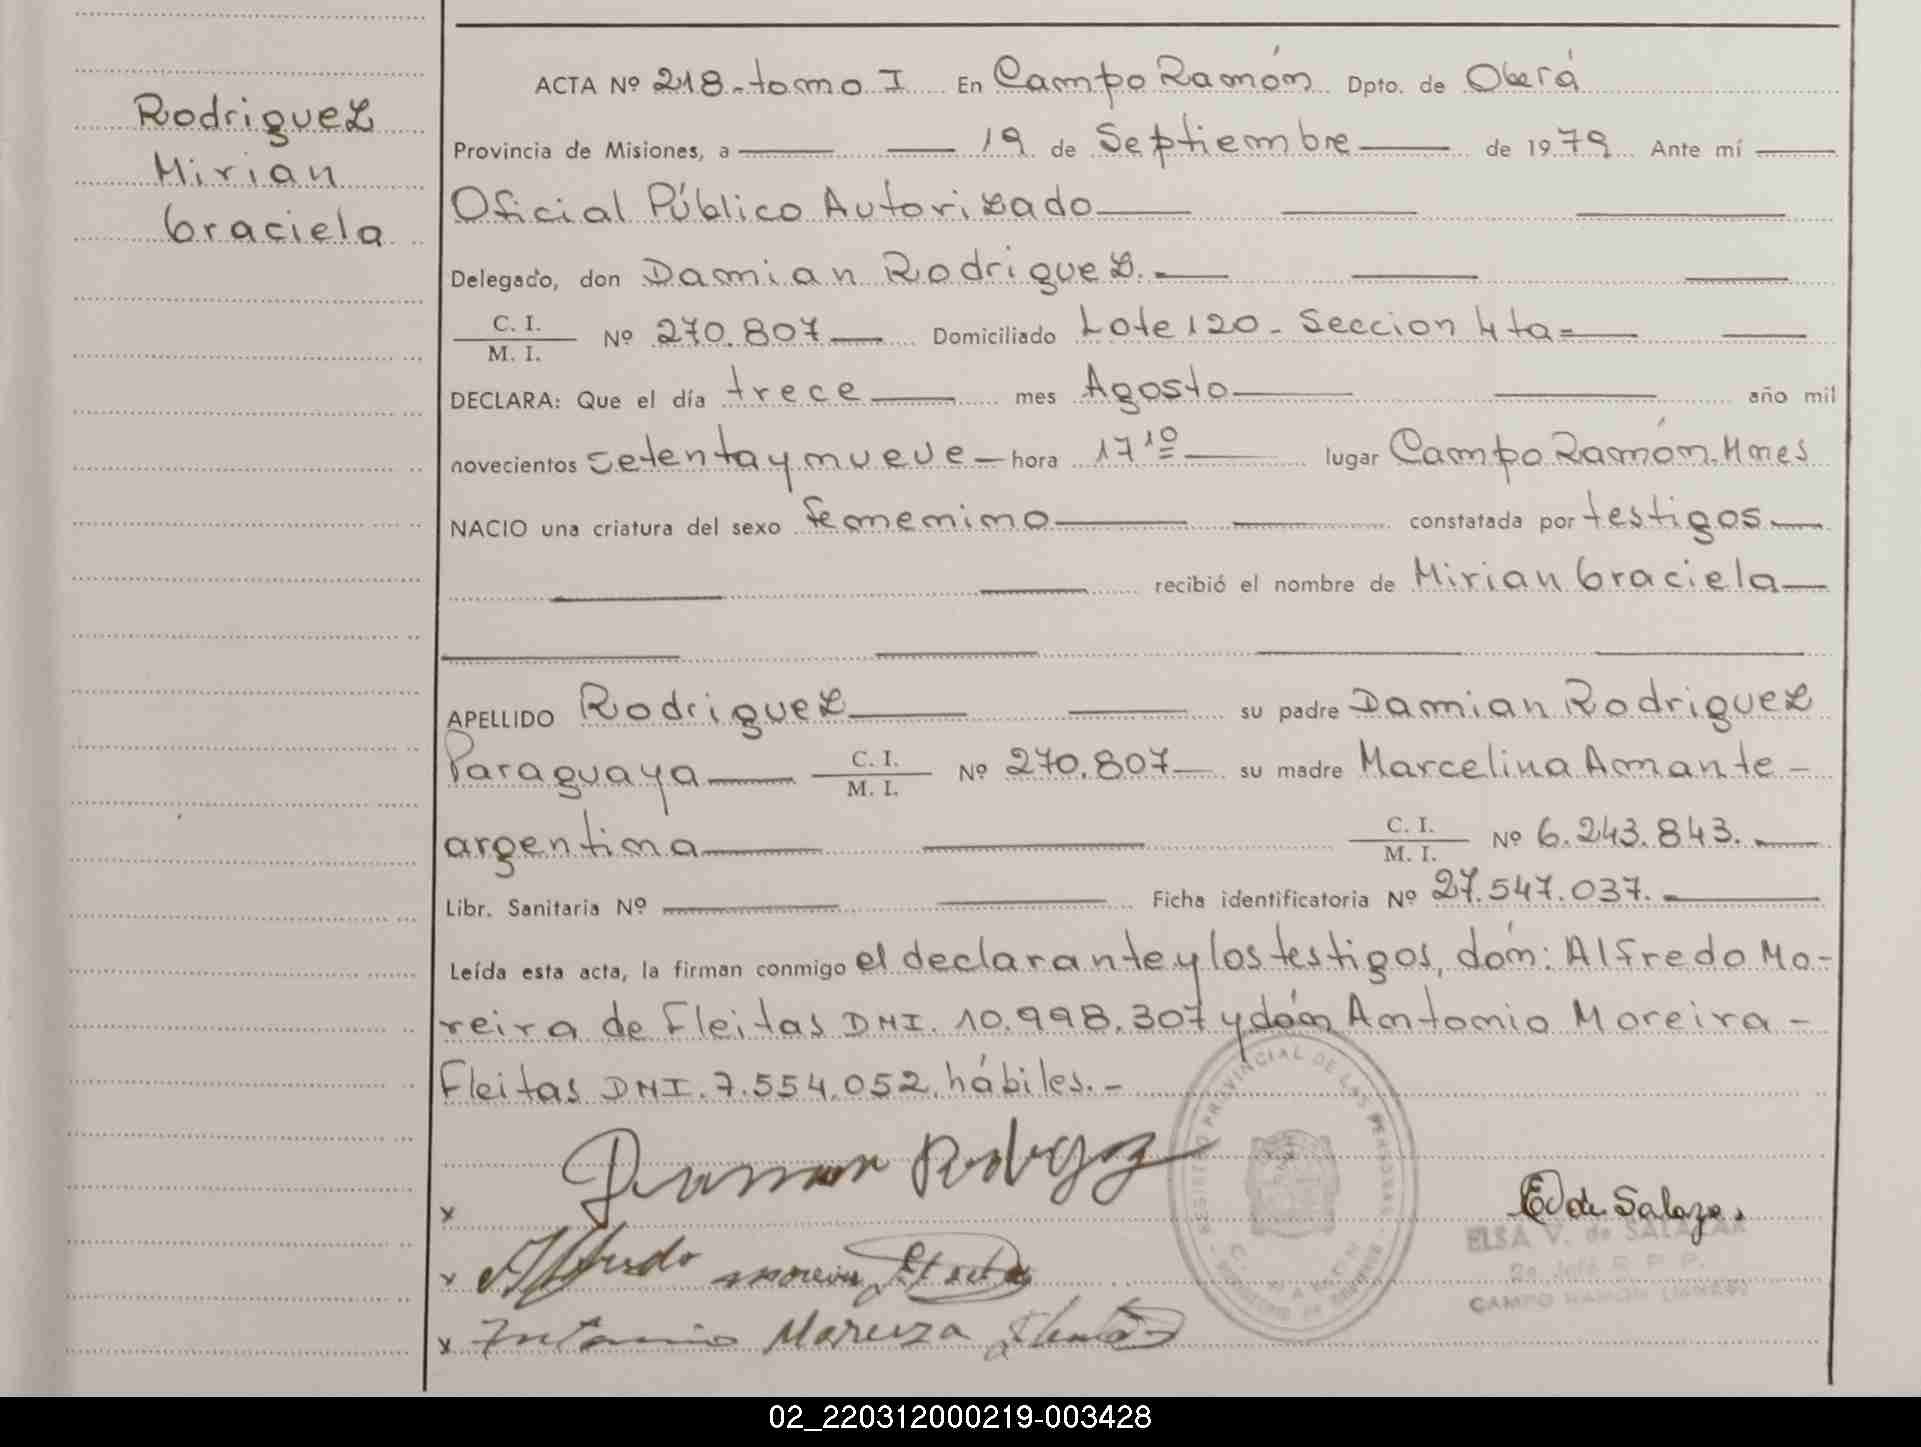 Rodriguez
Mirian
Graciela
ACTA Nº 218.-tomo I En Campo Ramón Dpto. de Oberá
Provincia de Misiones, a 19 de Septiembre de 1979 Ante mí
Oficial Público Autorizado
Delegado, don Damian Rodriguez.
C. I.
M. I. Nº 270.807 Domiciliado Lote 120 - Seccion 4ta
DECLARA: Que el día trece mes Agosto año mil
novecientos setenta y nueve hora 17 10 lugar Campo Ramón. Mnes
NACIO una criatura del sexo femenino constatada por testigos
recibió el nombre de Mirian Graciela
APELLIDO Rodriguez su padre Damian Rodriguez
Paraguaya C. I.
M. I. Nº 270.807 su madre Marcelina Amante -
argentina C. I.
M. I. Nº 6.243.843.
Libr. Sanitaria Nº Ficha identificatoria Nº 27.547.037.
Leída esta acta, la firman conmigo el declarante y los testigos, don: Alfredo Mo-
reira de Fleitas DNI. 10.998.307 y don Antonio Moreira -
Fleitas DNI. 7.554.052. hábiles. -
REGISTRO PROVINCIAL DE LAS PERSONAS
x
x Alfredo
x Antonio Moreira
E V de Salazar
ELSA V. de SALAZAR
CAMPO RAMON (MNES)
02_220312000219-003428